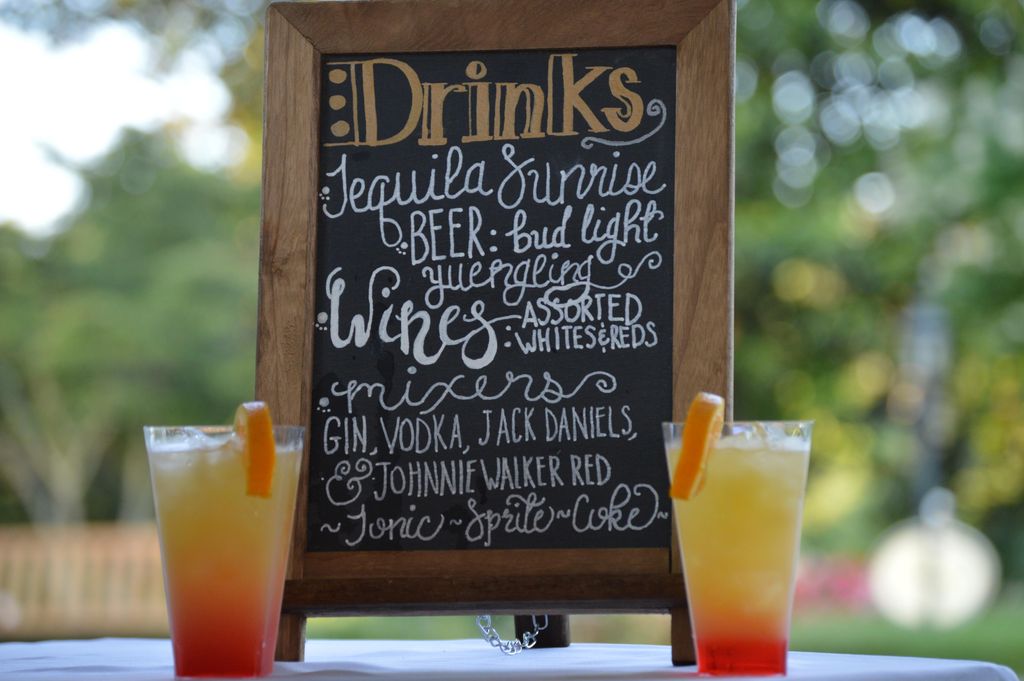 Drinks
Tequila Sunrise
BEER: bud light
yuengling
Wines: ASSORTED
WHITES & REDS
mixers
GIN, VODKA, JACK DANIELS,
& JOHNNIE WALKER RED
~Tonic~Sprite~Coke~